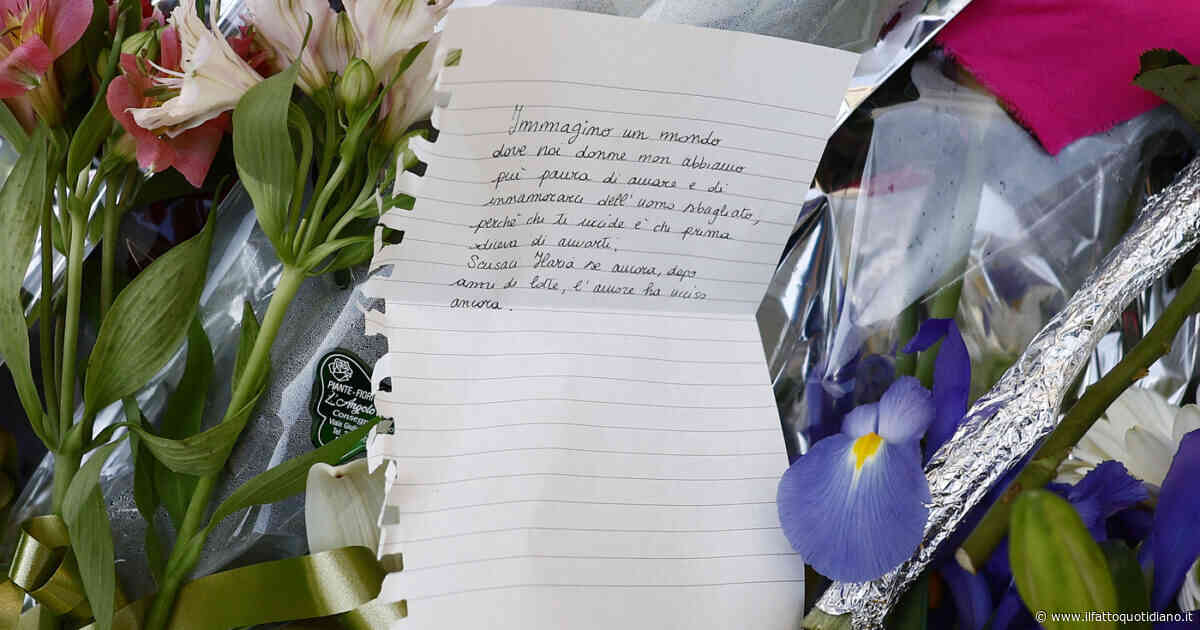 Immagino un mondo
dove noi donne non abbiamo
più paura di amare e di
innamorarci dell'uomo sbagliato,
perché chi ti uccide è chi prima
diceva di amarti.
Scusaci Ilaria se ancora, dopo
anni di lotte, l'amore ha ucciso
ancora.
PIANTE-FIORI
L'Angolo
Consegn
Viale Giu
Tel.
© www.ilfattoquotidiano.it